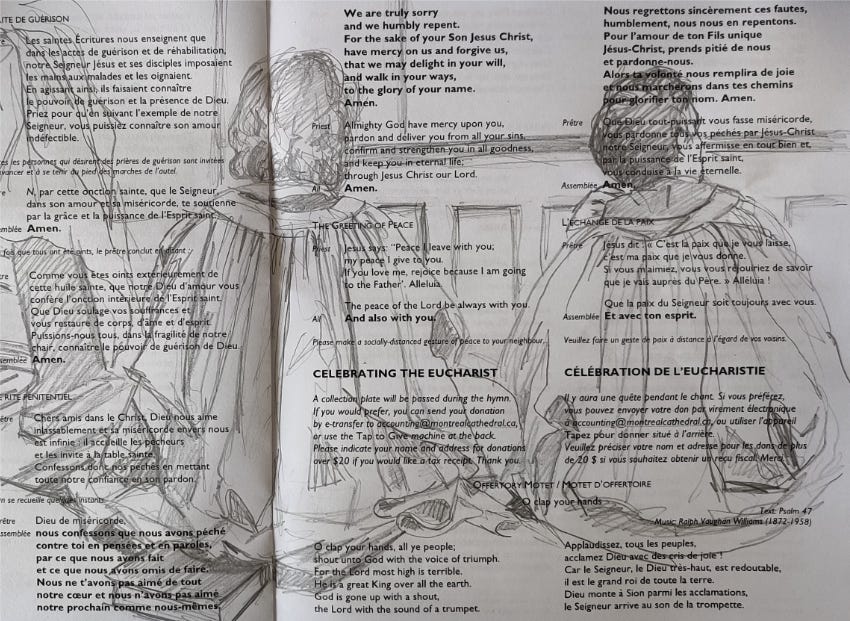 RITE DE GUÉRISON
Les saintes Écritures nous enseignent que
dans les actes de guérison et de réhabilitation,
notre Seigneur Jésus et ses disciples imposaient
les mains aux malades et les oignaient.
En agissant ainsi, ils faisaient connaître
le pouvoir de guérison et la présence de Dieu.
Priez pour qu'en suivant l'exemple de notre
Seigneur, vous puissiez connaître son amour
indéfectible.
les personnes qui désirent des prières de guérison sont invitées
et à se tenir du pied des marches de l'autel.
N, par cette onction sainte, que le Seigneur,
dans son amour et sa miséricorde, te soutienne
par la grâce et la puissance de l'Esprit saint.
Amen.
fois que tous ont été oints, le prêtre conclut en disant :
Comme vous êtes oints extérieurement de
cette huile sainte, que notre Dieu d'amour vous
confère l'onction intérieure de l'Esprit saint.
Que Dieu soulage vos souffrances et
vous restaure de corps, d'âme et d'esprit.
Puissions-nous tous, dans la fragilité de notre
chair, connaître le pouvoir de guérison de Dieu.
Amen.
RITE PÉNITENTIEL
Chers amis dans le Christ, Dieu nous aime
inlassablement et sa miséricorde envers nous
est infinie : il accueille les pécheurs
et les invite à la table sainte.
Confessons donc nos péchés en mettant
toute notre confiance en son pardon.
se recueille quelques instants
Dieu de miséricorde,
nous confessons que nous avons péché
contre toi en pensées et en paroles,
par ce que nous avons fait
et ce que nous avons omis de faire.
Nous ne t'avons pas aimé de tout
notre cœur et nous n'avons pas aimé
notre prochain comme nous-mêmes.
We are truly sorry
and we humbly repent.
For the sake of your Son Jesus Christ,
have mercy on us and forgive us,
that we may delight in your will,
and walk in your ways,
to the glory of your name.
Amen.
Priest Almighty God have mercy upon you,
pardon and deliver you from all your sins,
confirm and strengthen you in all goodness,
and keep you in eternal life;
through Jesus Christ our Lord.
All Amen.
THE GREETING OF PEACE
Priest Jesus says: "Peace I leave with you;
my peace I give to you.
If you love me, rejoice because I am going
to the Father'. Alleluia.
The peace of the Lord be always with you.
All And also with you.
Please make a socially-distanced gesture of peace to your neighbour.
CELEBRATING THE EUCHARIST
A collection plate will be passed during the hymn.
If you would prefer, you can send your donation
by e-transfer to accounting@montrealcathedral.ca,
or use the Tap to Give machine at the back.
Please indicate your name and address for donations
over $20 if you would like a tax receipt. Thank you.
Nous regrettons sincèrement ces fautes,
humblement, nous nous en repentons.
Pour l'amour de ton Fils unique
Jésus-Christ, prends pitié de nous
et pardonne-nous.
Alors ta volonté nous remplira de joie
et nous marcherons dans tes chemins
pour glorifier ton nom. Amen.
Prêtre Que Dieu tout-puissant vous fasse miséricorde,
vous pardonne tous vos péchés par Jésus-Christ
notre Seigneur, vous affermisse en tout bien et,
par la puissance de l'Esprit saint,
vous conduise à la vie éternelle.
Assemblée Amen.
L'ÉCHANGE DE LA PAIX
Prêtre Jésus dit : « C'est la paix que je vous laisse,
c'est ma paix que je vous donne.
Si vous m'aimiez, vous vous réjouiriez de savoir
que je vais auprès du Père. » Alléluia !
Que la paix du Seigneur soit toujours avec vous.
Assemblée Et avec ton esprit.
Veuillez faire un geste de paix à distance à l'égard de vos voisins.
CÉLÉBRATION DE L'EUCHARISTIE
Il y aura une quête pendant le chant. Si vous préférez,
vous pouvez envoyer votre don par virement électronique
à accounting@montrealcathedral.ca, ou utiliser l'appareil
Tapez pour donner situé à l'arrière.
Veuillez préciser votre nom et adresse pour les dons de plus
de 20 $ si vous souhaitez obtenir un reçu fiscal. Merci.
OFFERTORY MOTET / MOTET D'OFFERTOIRE
O clap your hands
Text: Psalm 47
Music: Ralph Vaughan Williams (1872-1958)
O clap your hands, all ye people;
shout unto God with the voice of triumph.
For the Lord most high is terrible.
He is a great King over all the earth.
God is gone up with a shout,
the Lord with the sound of a trumpet.
Applaudissez, tous les peuples,
acclamez Dieu avec des cris de joie !
Car le Seigneur, le Dieu très-haut, est redoutable,
il est le grand roi de toute la terre.
Dieu monte à Sion parmi les acclamations,
le Seigneur arrive au son de la trompette.